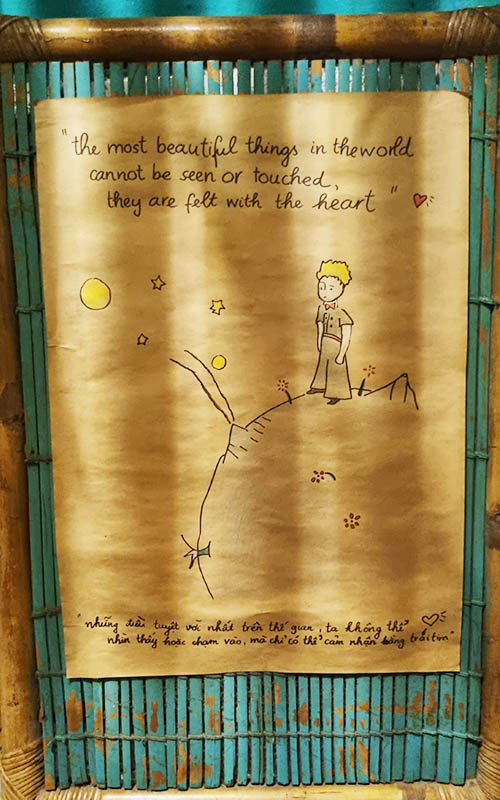 "the most beautiful things in theworld
cannot be seen or touched,
they are felt with the heart"
"những điều tuyệt vời nhất trên thế gian, ta không thể
nhìn thấy hoặc chạm vào, mà chỉ có thể cảm nhận bằng trái tim"